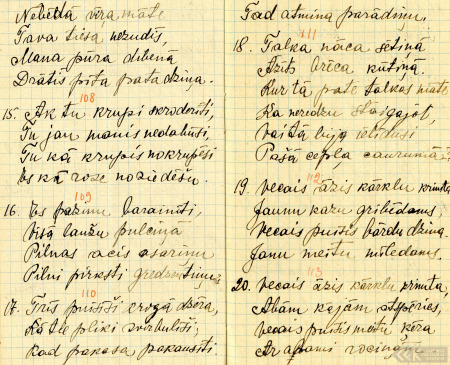 Nebēdā vīra māte
Tava tiesa nezudīs,
Mana pūra dibenā
Drātīs pīta pātadziņa.
108
15. Ak tu krupi skroderīti,
Tu jau manis nedabūsi,
Tu kā krupis nokrupēsi
Es kā roze noziedēšu.
109
16. Es pazinu barainīti,
Visā laužu pulciņā
Pilnas acis asariņu
Pilni pirksti gredzentiņu
110
17. Trīs puisīši krogā dzēra,
Kā tie pliki zvirbulīši,
Kad pakasa pakausīti
Tad atmina parādiņu.
111
18. Talka nāca sētiņā
Āzits brēca kūtiņā.
Kur tā pate talkas māte
Ka neredzu staigājot,
Vai tā bija ielīdusi
Pašā cepļa caurumā
112
19. Vecais āzis kārklu krūmā
Jaunu kazu gribēdams,
Vecais puisis bārdu dzina
Jaunu meitu mīlēdams.
113
20. Vecais āzis kārklu krūmā,
Abām kājām atspēries,
Vecais puisis meitu ķēra
Ar abāmi rociņām